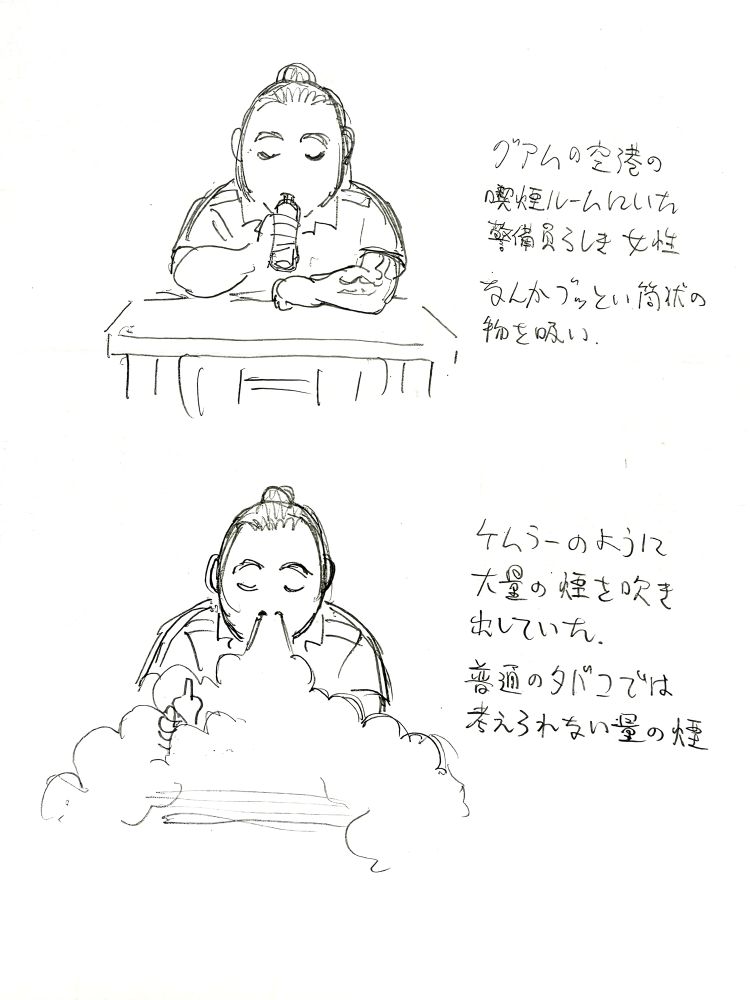 グアムの空港の
喫煙ルームにいた
警備員らしき女性
なんかブッとい筒状の
物を吸い.
ケムラーのように
大量の煙を吹き
出していた.
普通のタバコでは
考えられない量の煙